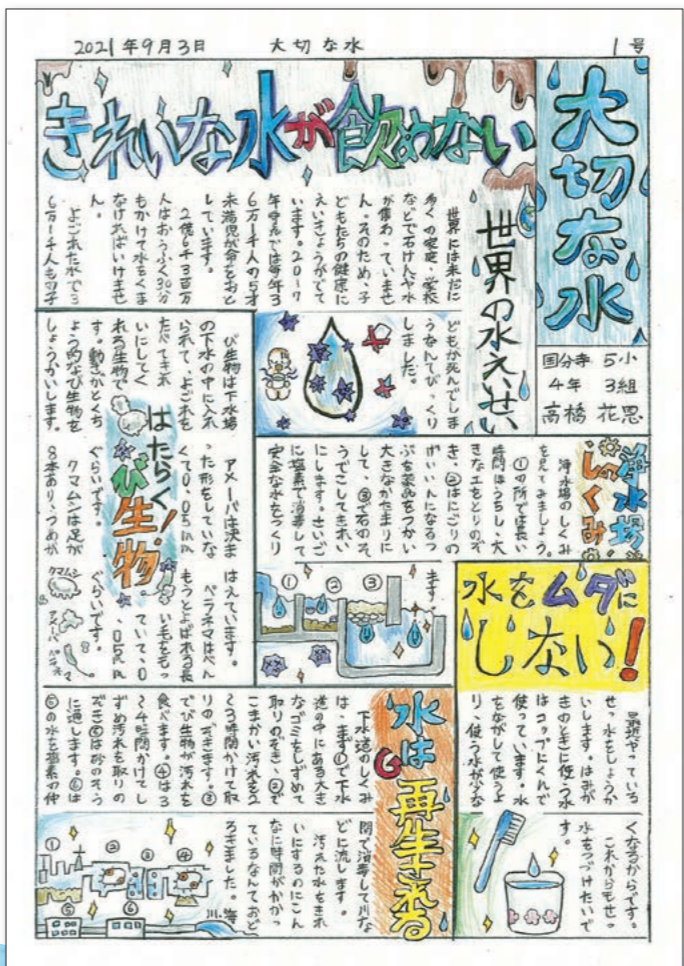 2021年9月3日　大切な水　1号
大切な水
国分寺5小
4年3組
高橋花思
きれいな水が飲めない
世界の水えいせい
世界には未だに
多くの家庭、学校
などで石けんや水
が備わっていませ
ん。そのため、子
どもたちの健康に
えいきょうがでて
います。2017
では毎年3
6万1千人の5才
未満児が命をおと
しています。
2億6千3百万
人はおうふく30分
もかけて水をくま
なければいけませ
ん。
よごれた水で3
6万1千人もの子
どもが死んでしま
うなんてびっくり
しました。
浄水場のしくみ
浄水場のしくみ
を見てみましょう。
①の所では長い
時間ほうちし、大
きな土をとりのぞ
き、②はにごりの
げんいんになるつ
ぶを薬品をつかい
大きなかたまりに
して、③で石のそ
うでこしてきれい
にします。さいご
に塩素で消毒して
安全な水をつくり
ます。
① ② ③
はたらく!び生物。
び生物は下水場
の下水の中に入れ
られて、よごれを
たべてきれ
いにしてく
れる生物で
す。動きがとくち
ょう的なび生物を
しょうかいします。
アメーバは決ま
った形をしていな
くて0,05mm
ぐらいです。
クマムシは足が
8本あり、つめが
はえています。
ペラネマはべん
もうとよばれる長
い毛をもっ
ていて、0
,05mm
ぐらいです。
クマムシ
アメーバ
ペラネマ
水をムダに
しない!
最近やっている
せっ水をしょうか
いします。はみが
きのときに使う水
はコップにくんで
使っています。水
をながして使うよ
り、使う水が少な
くなるからです。
これからもせっ
水をつづけたいで
す。
水は再生される
下水道のしくみ
は、まず①で下水
道の中にある大き
なゴミをしずめて
取りのぞき、②で
こまかい汚れを2
~3時間かけて取
りのぞきます。③
でび生物が汚れを
食べます。④は3
~4時間かけてし
ずめ汚れを取りの
ぞき⑤は砂のそう
に通します。⑥は
⑤の水を塩素の仲
間で消毒して川な
どに流します。
汚れた水をきれ
いにするのにこん
なに時間がかかっ
ているなんておど
ろきました。
① ② ③ ④
⑤ ⑥
海
川